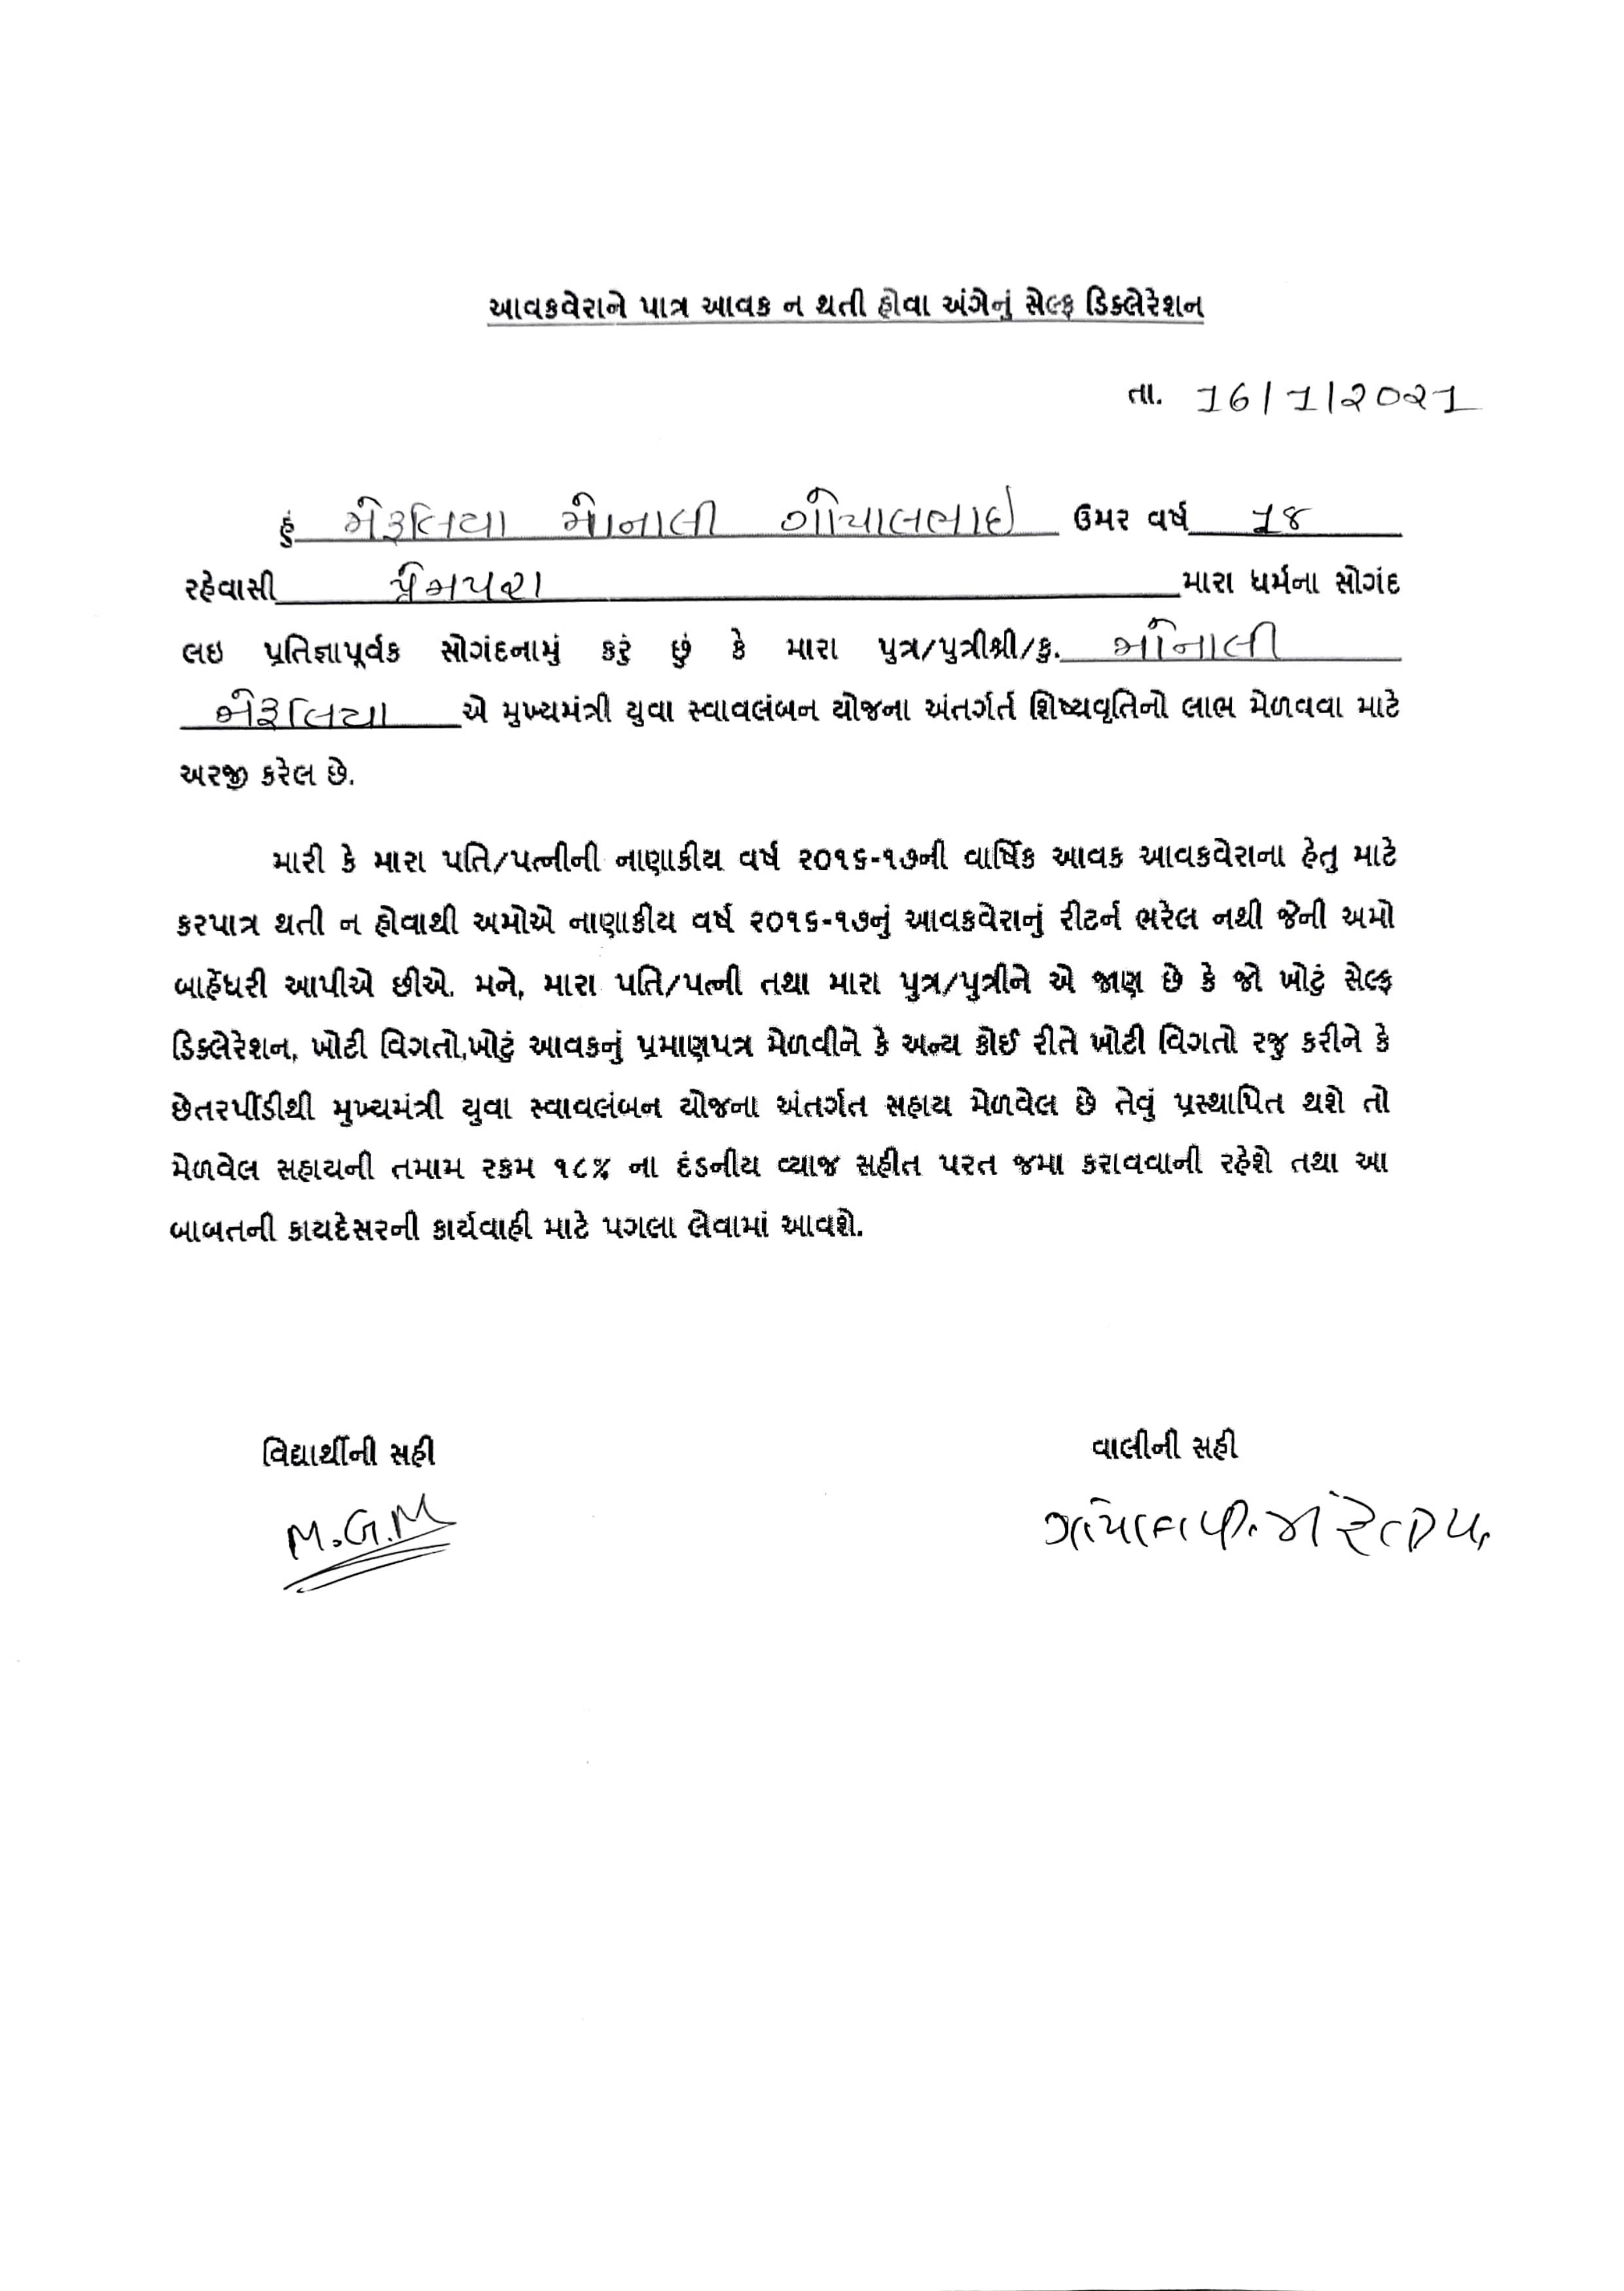 આવકવેરાને પાત્ર આવક ન થતી હોવા અંગેનું સેલ્ફ ડિક્લેરેશન
તા. 16/1/2021
હું મેરૂલિયા મોનાલી ગોપાલભાઇ ઉમર વર્ષ 18
રહેવાસી પ્રેમપરા મારા ધર્મના સોગંદ
લઇ પ્રતિજ્ઞાપૂર્વક સોગંદનામું કરું છું કે મારા પુત્ર/પુત્રીશ્રી/કુ. મોનાલી
મેરૂલિયા એ મુખ્યમંત્રી યુવા સ્વાવલંબન યોજના અંતર્ગર્ત શિષ્યવૃતિનો લાભ મેળવવા માટે
અરજી કરેલ છે.
મારી કે મારા પતિ/પત્નીની નાણાકીય વર્ષ ૨૦૧૬-૧૭ની વાર્ષિક આવક આવકવેરાના હેતુ માટે
કરપાત્ર થતી ન હોવાથી અમોએ નાણાકીય વર્ષ ૨૦૧૬-૧૭નું આવકવેરાનું રીટર્ન ભરેલ નથી જેની અમો
બાહેંધરી આપીએ છીએ. મને, મારા પતિ/પત્ની તથા મારા પુત્ર/પુત્રીને એ જાણ છે કે જો ખોટું સેલ્ફ
ડિક્લેરેશન, ખોટી વિગતો,ખોટું આવકનું પ્રમાણપત્ર મેળવીને કે અન્ય કોઈ રીતે ખોટી વિગતો રજુ કરીને કે
છેતરપીંડીથી મુખ્યમંત્રી યુવા સ્વાવલંબન યોજના અંતર્ગત સહાય મેળવેલ છે તેવું પ્રસ્થાપિત થશે તો
મેળવેલ સહાયની તમામ રકમ ૧૮% ના દંડનીય વ્યાજ સહીત પરત જમા કરાવવાની રહેશે તથા આ
બાબતની કાયદેસરની કાર્યવાહી માટે પગલા લેવામાં આવશે.
વિદ્યાર્થીની સહી વાલીની સહી
M.G.M ગોપાલ પી.